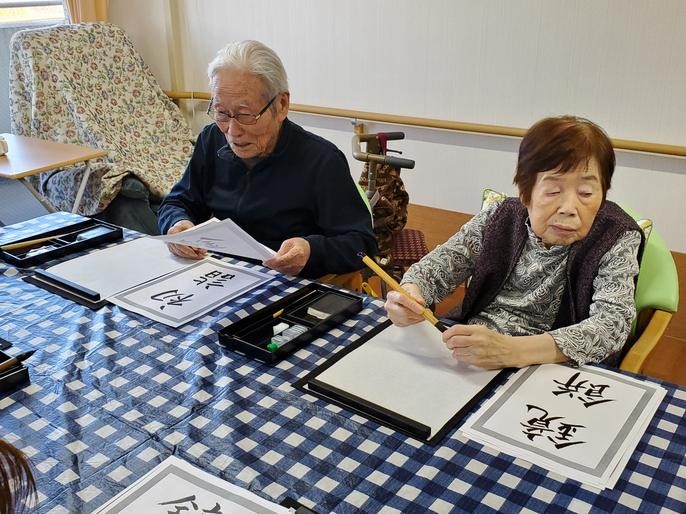 初詣
鏡餅